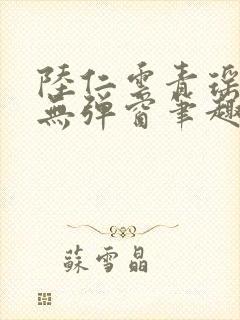 陸仁雲青瑤
無彈窗筆趣
蘇雪晶